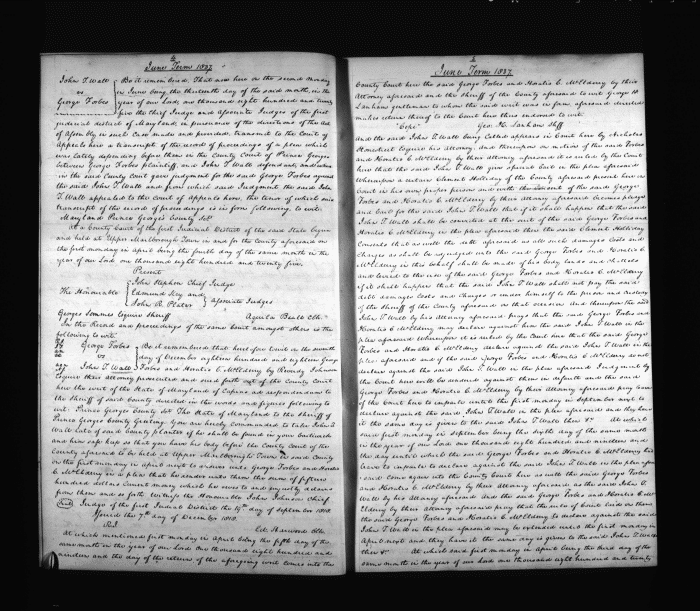 June Term 1827
John T. Watt
vs
George Forbes
Be it remembered, That now here on the second Monday
in June being the thirteenth day of the said month, in the
year of our Lord one thousand eight hundred and twenty
the Chief Judge and Associate Judges of the first
judicial district of Maryland in pursuance of the directions of the Act
of Assembly in such Case made and provided, transmit to the Court of
Appeals here a transcript of the record of proceedings of a plea which
was lately depending before them in the County Court of Prince Georges
between George Forbes plaintiff, and John T Watt defendant, and when
in the said County Court gave judgment for the said George Forbes against
the said John T Watt and from which said Judgment the said John
T. Watt appealed to the Court of Appeals here, the tenor of which said
transcript of the record of proceedings is in form following, to wit:
Maryland Prince George's County Sct
At a County Court of the first Judicial District of the said State begun
and held at Upper Marlborough Town in and for the County aforesaid on
the first Monday in April being the fourth day of the same month in the
year of our Lord one thousand eight hundred and twenty five.
Present
The Honourable
John Stephen Chief Judge
Edmund Key and
John R. Plater
Associate Judges
George Semmes Esquire Sheriff Aquila Beall Clk.
In the Record and proceedings of the same Court amongst others is the
following to wit:
George Forbes
vs
John T. Watt
Be it remembered that heretofore to wit on the seventh
day of December eighteen hundred and eighteen George
Forbes and Horatio C. McElderry by Johnson
Esquire their Attorney presented and sued forth out of the County Court
here the writ of the State of Maryland of Capias ad respondendum to
the Sheriff of said County directed in the words and figures following to
wit. Prince Georges County Sct The State of Maryland to the Sheriff of
Prince Georges County Greeting. You are hereby commanded to take John T
Watt late of said County planter if he shall be found in your bailiwick
and him safe keep so that you have his body before the County Court of the
County aforesaid to be held at Upper Marlborough Town in said County
on the first Monday in April next to answer unto George Forbes and Horatio
C McElderry in a plea that he render unto them the sum of fifteen
hundred dollars current money which he owes to and unjustly detains
from them and so forth Witness the Honourable John Johnson Chief
Judge of the first Judicial District the 19th day of September 1818.
Issued the 7th day of December 1818.
At which mentioned first Monday in April being the fifth day of the
same month in the year of our Lord one thousand eight hundred and
nineteen and the day of the return of the aforegoing writ comes into the
June Term 1827
County Court here the said George Forbes and Horatio C. McElderry by their
Attorney aforesaid and the Sheriff of the County aforesaid to wit George H
Lanham gentleman to whom the said writ was in form aforesaid directed
makes return thereof to the Court here thus endorsed to wit:
"Cepi" Geo. H. Lanham Shff
And the said John T Watt being Called appears in Court here by Nicholas
Esquire his Attorney. and thereupon on motion of the said Forbes
and Horatio C McElderry by their Attorney aforesaid it is ruled by the Court
here that the said John T Watt give special bail in the plea aforesaid
Whereupon a certain Clement Holliday of the County aforesaid present here in
Court in his own proper person and with the assent of the said George
Forbes and Horatio C McElderry by their Attorney aforesaid becomes pledge
and bail for the said John T Watt that if it shall happen that the said
John T Watt shall be convicted at the suit of the said George Forbes and
Horatio C McElderry in the plea aforesaid then the said Clement Holliday
Consents that as well the debt aforesaid as all such damages Costs and
Charges as shall be adjudged unto the said George Forbes and Horatio C
McElderry in this behalf shall be made of his body lands and chattels
and levied to the use of the said George Forbes and Horatio C McElderry
if it shall happen that the said John T Watt shall not pay the said
debt damages costs and charges or render himself to the prison and custody
of the Sheriff of the County aforesaid on that occasion. And thereupon the said
John T Watt by his Attorney aforesaid prays that the said George Forbes and
Horatio C McElderry may declare against him the said John T Watt in the
plea aforesaid Whereupon it is ruled by the Court here that the said George
Forbes and Horatio C McElderry declare against the said John T Watt in the
plea aforesaid and if the said George Forbes and Horatio C McElderry do not
declare against the said John T. Watt in the plea aforesaid Judgment by the
Court here will be rendered against them in default and the said
George Forbes and Horatio C. McElderry by their Attorney aforesaid pray leave
of the Court here to imparle until the first Monday in September next to
declare against the said John T Watt in the plea aforesaid and they have
it the same day is given to the said John T Watt also &c. At which
said first Monday in September being the sixth day of the same month
in the year of our Lord one thousand eight hundred and nineteen and
the day until which the said George Forbes and Horatio C McElderry had
leave to imparle to declare against the said John T Watt in the plea afore
said come again into the County Court here as well the said George Forbes
and Horatio C McElderry by their Attorney aforesaid as the said John T.
Watt by his Attorney aforesaid And the said George Forbes and Horatio C Mc
Elderry by their Attorney aforesaid pray that the rule of Court laid on them
the said George Forbes and Horatio C McElderry to declare against the said
John T Watt in the plea aforesaid may be extended until the first Monday in
April next and they have it the same day is given to the said John T Watt
then &c. At which said first Monday in April being the third day of the
same month in the year of our Lord one thousand eight hundred and twenty